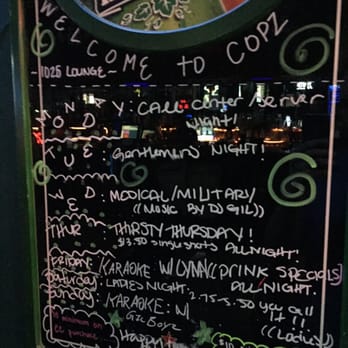 WELCOME TO COPZ
1025 LOUNGE~
MONDAY: CALL CENTER/SERVER
Night!
TUE: Gentlemen's NIGHT!
WED: MEDICAL/MILITARY
((MUSIC BY DJ GIL))
THUR: THIRSTY THURSDAY!
$3.50 single shots ALL NIGHT!
FRIDAY: KARAOKE W/ LYNN((DRINK SPECIALS)
Saturday: LADIES NIGHT ALL NIGHT.
Sunday: KARAOKE: W/ 2.75-5.50 you call
Gee Boyz it!!
((Ladies))
minimum on
purchase
Happy
$10